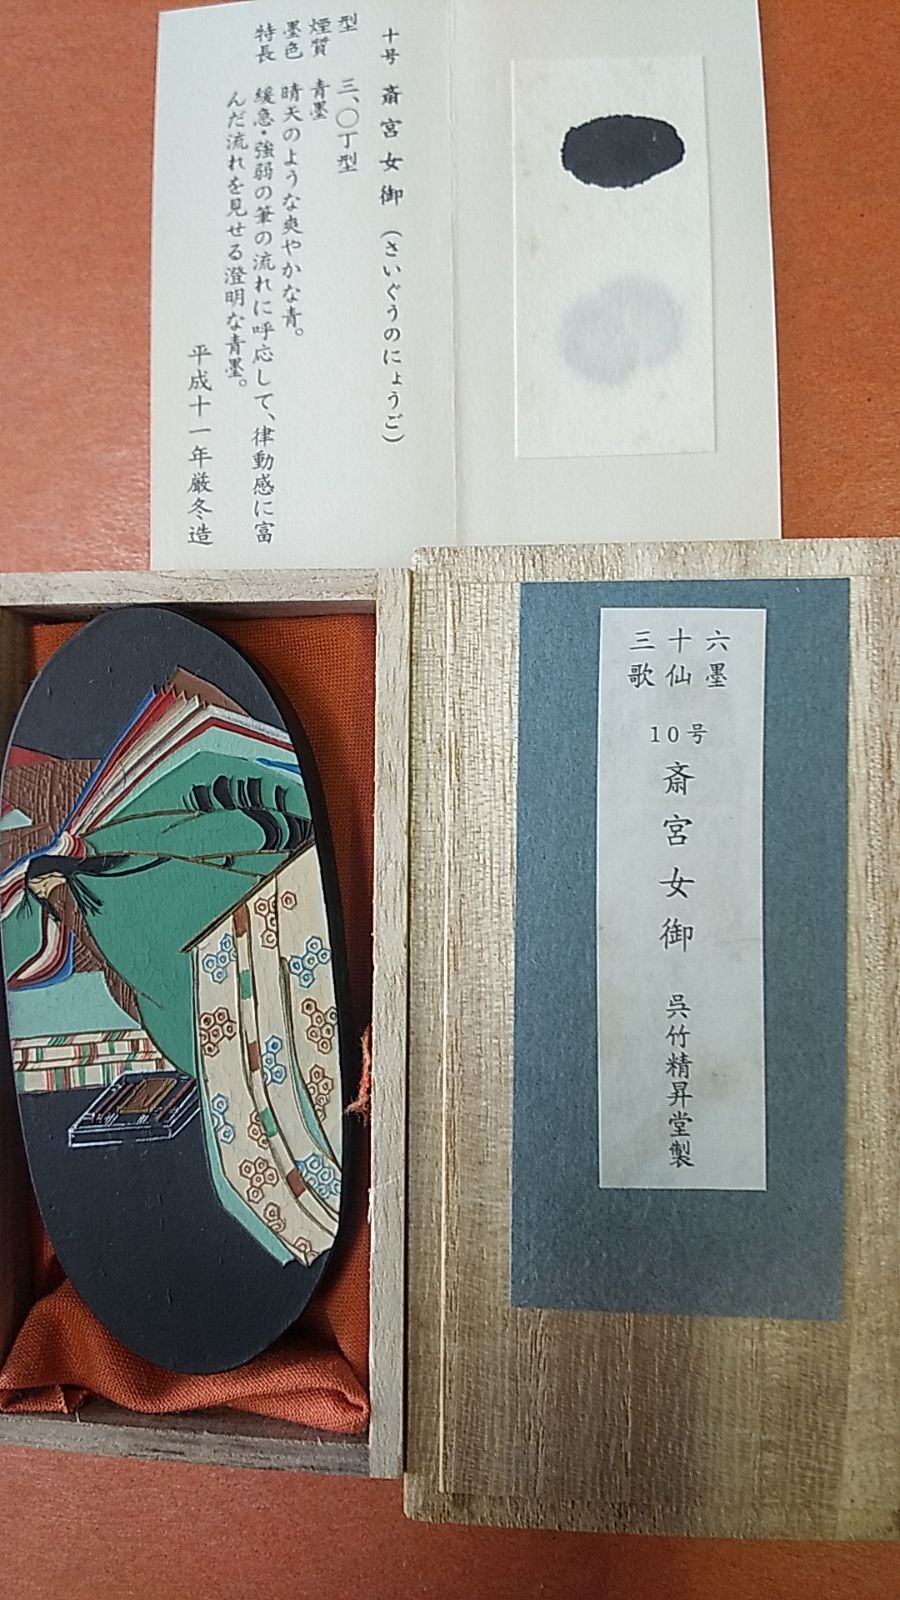 十号 斎宮女御 (さいぐうのにょうご)
型 三、〇丁型
煙質 青墨
墨色 晴天のような爽やかな青。
特長 緩急・強弱の筆の流れに呼応して、律動感に富
んだ流れを見せる澄明な青墨。
平成十一年厳冬造
三十六
歌仙墨
10号
斎宮女御
呉竹精昇堂製